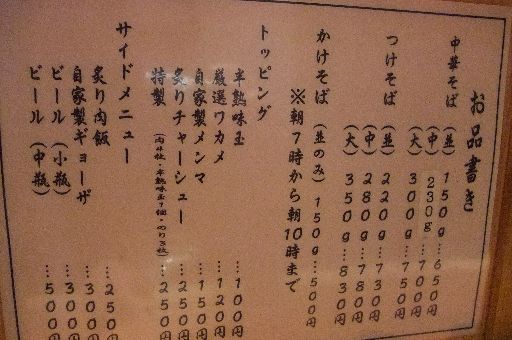 お品書き
中華そば
(並) 150g…650円
(中) 230g…700円
(大) 300g…750円
つけそば
(並) 220g…730円
(中) 280g…780円
(大) 350g…830円
かけそば (並のみ) 150g…500円
※朝7時から朝10時まで
トッピング
半熟味玉 …100円
厳選ワカメ …120円
自家製メンマ …150円
炙りチャーシュー …250円
特製 (肉4枚・半熟味玉1個・のり3枚) …250円
サイドメニュー
炙り肉飯 …250円
自家製ギョーザ …300円
ビール (小瓶) …300円
ビール (中瓶) …500円